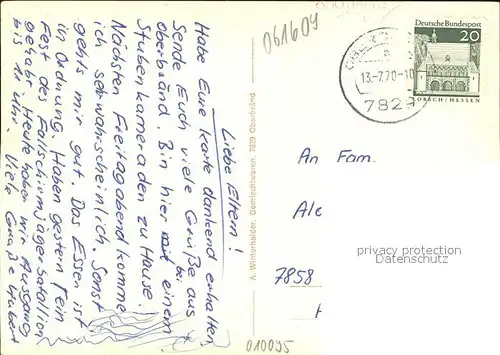 Liebe Eltern!
Habe Eure Karte dankend erhalten,
Sende Euch viele Grüße aus
Oberbränd. Bin hier mit einem
bei
Stubenkameraden zu Hause.
Nächsten Freitagabend komme
ich sehrwahrscheinlich. Sonst
gehts mir gut. Das Essen ist
in Ordnung. Haben gestern Fein
Fest des Fallschirmjägerbatallion
gehabt. Heute haben wir Ausgang
bis 12 Uhr. Viele Grüße Hubert
A. Winterhalder, Gemischtwaren, 7829 Oberbränd
061609
13.-7.70-10
782
Deutsche Bundespost
20
LORSCH/HESSEN
An Fam.
Ale
7858
010095
privacy protection
Datenschutz